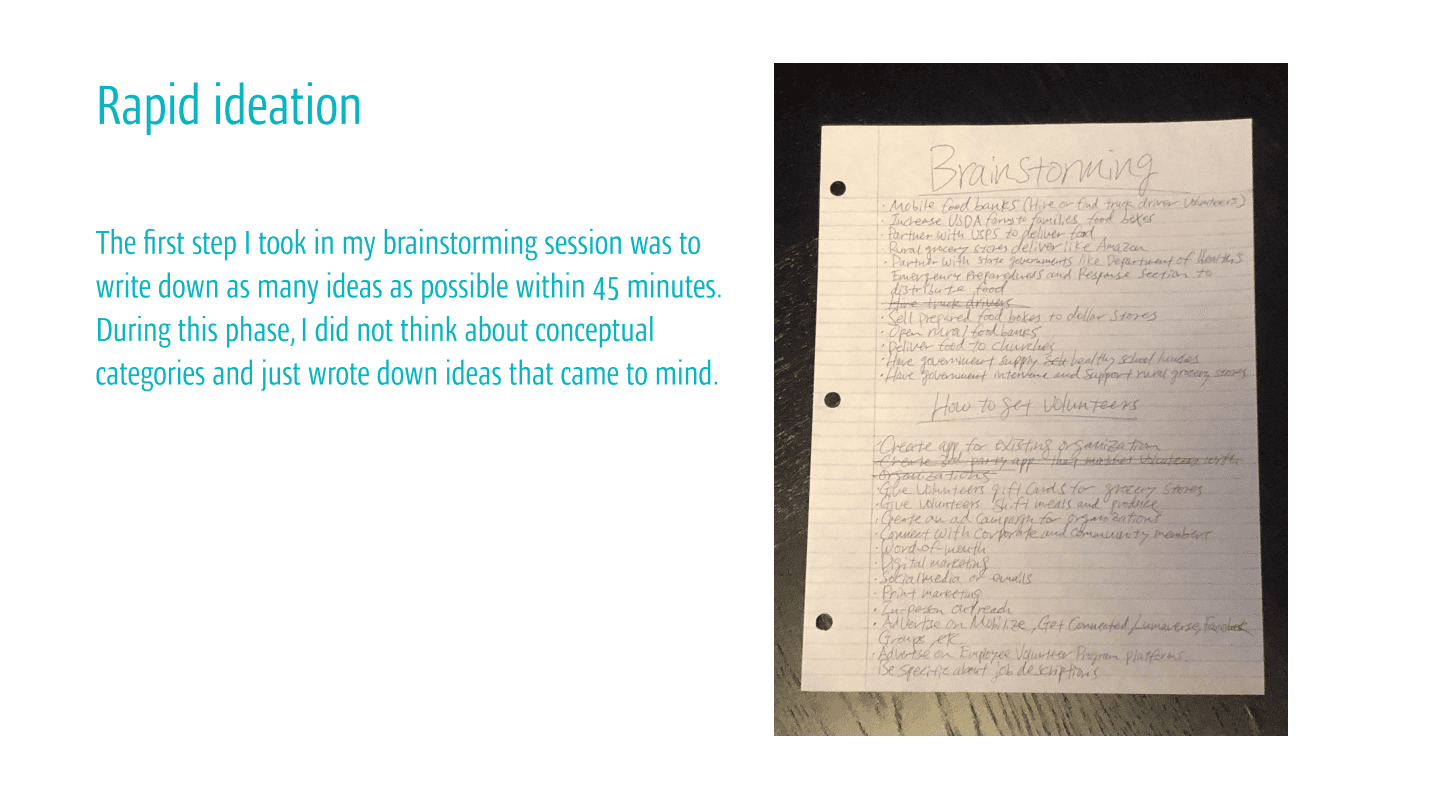 Rapid ideation
The first step I took in my brainstorming session was to
write down as many ideas as possible within 45 minutes.
During this phase, I did not think about conceptual
categories and just wrote down ideas that came to mind.
Brainstorming
· Mobile food banks (Hire or find truck driver volunteers)
· Increase USDA farms to families food boxes
· Partner with USPS to deliver food
· Rural grocery stores deliver like Amazon
· Partner with state governments like Department of Health's
Emergency Preparedness and Response Section to
distribute food
· Hire truck drivers
· Sell prepared food boxes to dollar stores
· Open rural food banks
· Deliver food to churches
· Have government supply healthy school lunches
· Have government intervene and support rural grocery stores
How to get volunteers
· Create app for existing organization
· Create 3rd party app that matches volunteers with
organizations
· Give volunteers gift cards for grocery stores
· Give volunteers shift meals and produce
· Create an ad campaign for organizations
· Connect with corporate and community members
· Word-of-mouth
· Digital marketing
· Social media or emails
· Print marketing
· In-person outreach
· Advertise on Mobilize, Get Connected, Lumaverse, Facebook
Groups, etc.
· Advertise on Employee Volunteer Program platforms.
Be specific about job descriptions